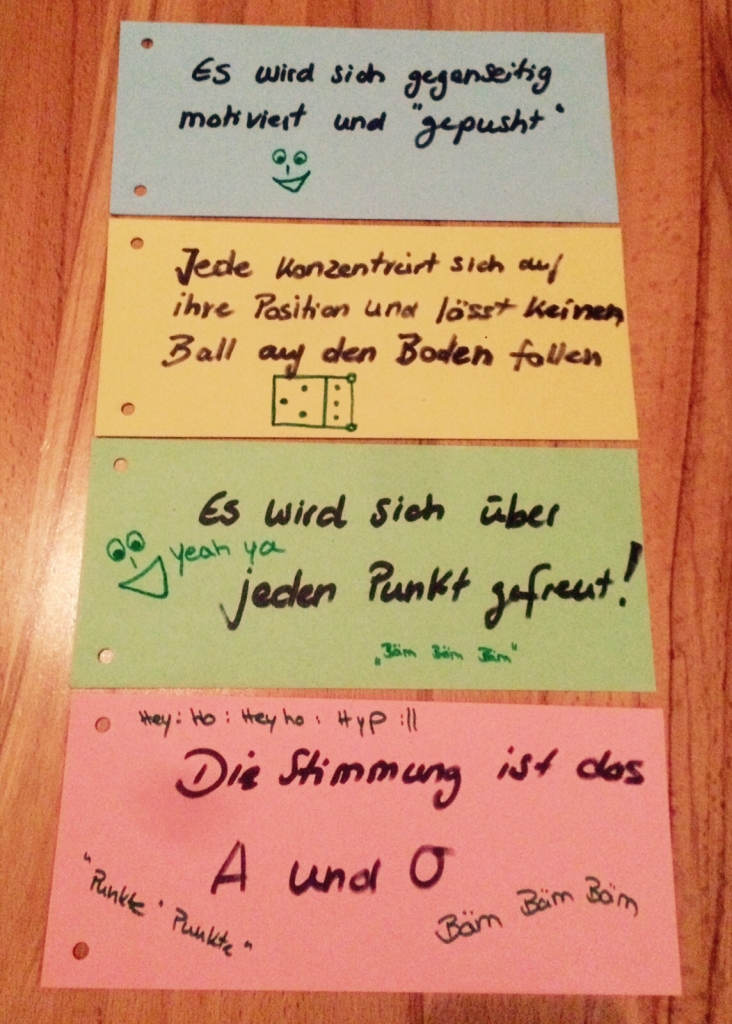 Es wird sich gegenseitig
motiviert und "gepusht"
Jede konzentriert sich auf
ihre Position und lässt keinen
Ball auf den Boden fallen
Es wird sich über
yeah ya
jeden Punkt gefreut!
"Bäm Bäm Bäm"
Hey: Ho: Hey ho: Hyp :||
Die Stimmung ist das
A und O
"Punkte Punkte"
Bäm Bäm Bäm